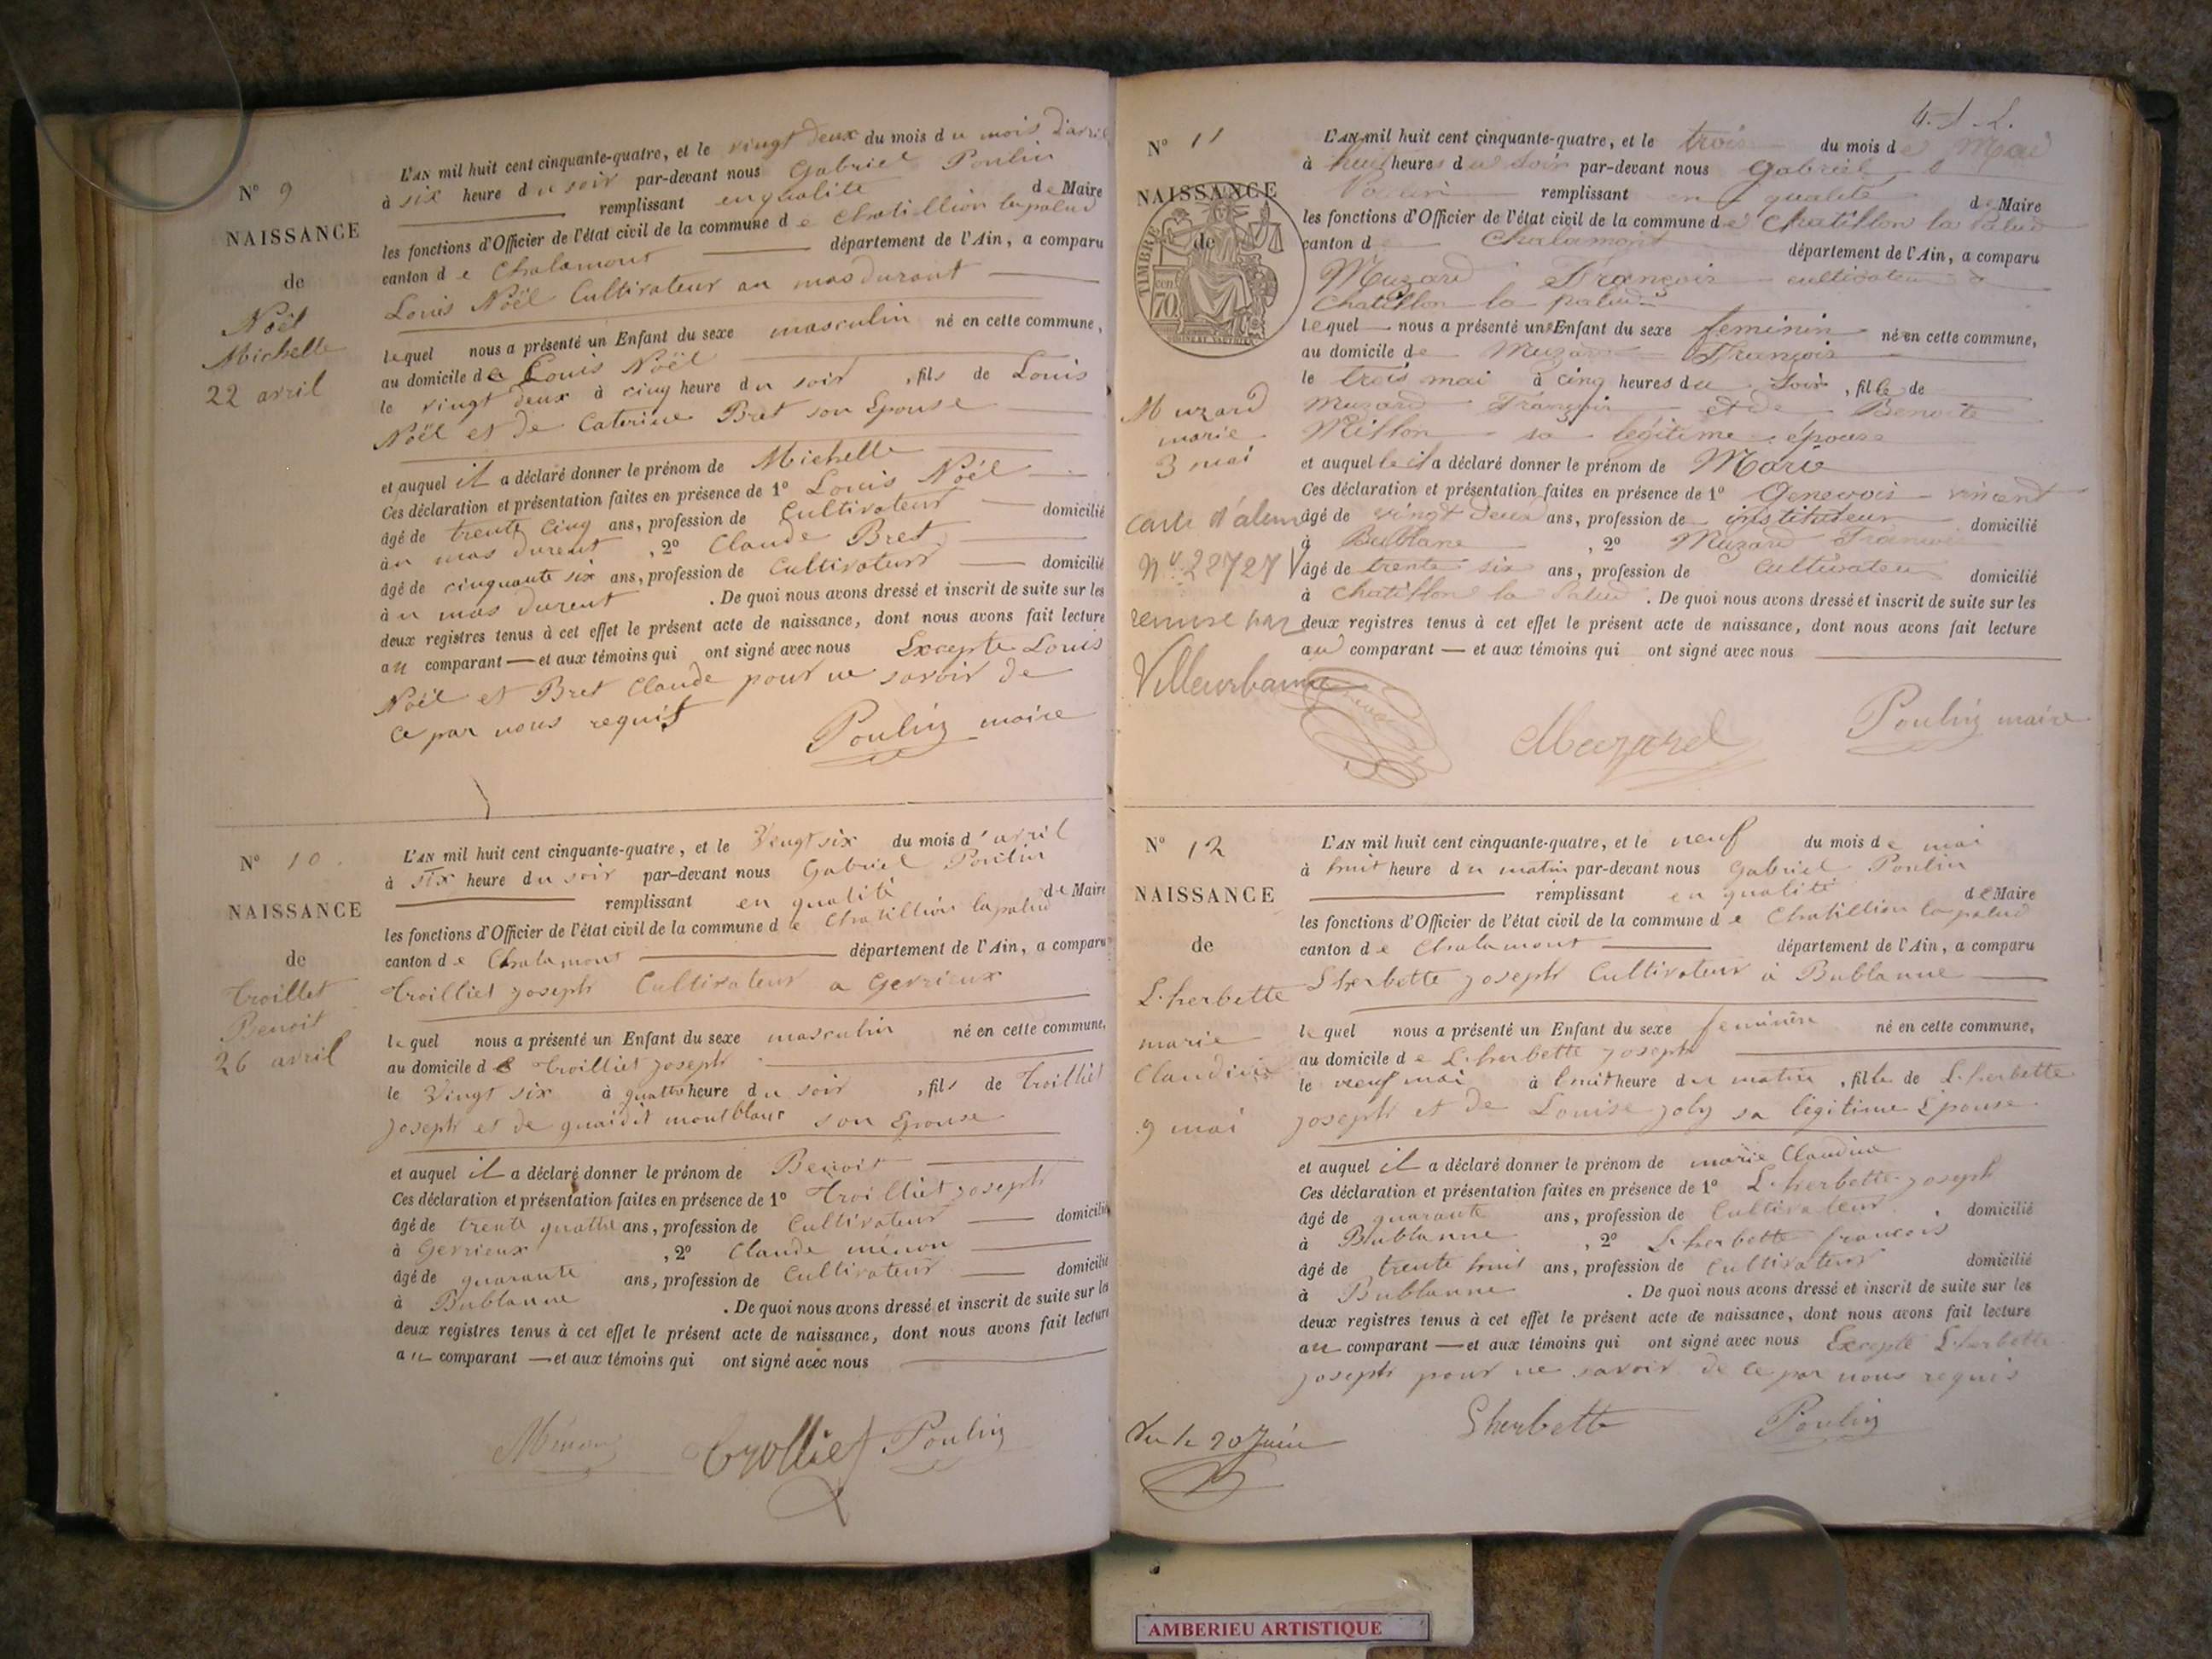 N° 9
NAISSANCE
de
Noël
Michelle
22 avril
L'AN mil huit cent cinquante-quatre, et le vingt deux du mois du mois d'avril
à six heure du soir par-devant nous Gabriel Poulin
remplissant en qualité de Maire
les fonctions d'Officier de l'état civil de la commune de Chatillion lapalud
canton de Chalamont département de l'Ain, a comparu
Louis Noël Cultivateur au mas durant
lequel nous a présenté un Enfant du sexe masculin né en cette commune,
au domicile de Louis Noël
le vingt deux à cinq heure du soir, fils de Louis
Noël et de Caterine Bret son Epouse
et auquel il a déclaré donner le prénom de Michelle
Ces déclaration et présentation faites en présence de 1° Louis Noël
âgé de trente cinq ans, profession de Cultivateur domicilié
au mas durent, 2° Claude Bret
âgé de cinquante six ans, profession de Cultivateur domicilié
au mas durent. De quoi nous avons dressé et inscrit de suite sur les
deux registres tenus à cet effet le présent acte de naissance, dont nous avons fait lecture
au comparant — et aux témoins qui ont signé avec nous Excepte Louis
Noël et Bret Claude pour ne savoir de
ce par nous requis
Poulin maire
N° 10.
NAISSANCE
de
Troillet
Benoit
26 avril
L'AN mil huit cent cinquante-quatre, et le Vingt six du mois d'avril
à six heure du soir par-devant nous Gabriel Poulin
remplissant en qualité de Maire
les fonctions d'Officier de l'état civil de la commune de Chatillion lapalud
canton de Chalamont département de l'Ain, a comparu
Troilliet joseph Cultivateur a Gevrieux
lequel nous a présenté un Enfant du sexe masculin né en cette commune,
au domicile de Troilliet joseph
le Vingt six à quattre heure du soir, fils de Troilliet
joseph et de montblanc son Epouse
et auquel il a déclaré donner le prénom de Benoit
Ces déclaration et présentation faites en présence de 1° Troilliet joseph
âgé de trente quattre ans, profession de Cultivateur domicilié
à Gevrieux, 2° Claude ménon
âgé de quarante ans, profession de Cultivateur domicilié
à Bublanne. De quoi nous avons dressé et inscrit de suite sur les
deux registres tenus à cet effet le présent acte de naissance, dont nous avons fait lecture
au comparant — et aux témoins qui ont signé avec nous
Ménon Trolliet Poulin
N° 11
NAISSANCE
de
TIMBRE
70
Muzard
marie
3 mai
carte d'alim
N° 28727
remise par
Villeurbanne
L'AN mil huit cent cinquante-quatre, et le trois du mois de Mai
à huit heures du soir par-devant nous Gabriel
remplissant en qualité de Maire
les fonctions d'Officier de l'état civil de la commune de Chatillon la Palud
canton de Chalamont département de l'Ain, a comparu
Muzard François cultivateur à
Chatillon la palud
lequel — nous a présenté un Enfant du sexe feminin né en cette commune,
au domicile de Muzard François
le trois mai à cinq heures du soir, fille de
Muzard François et de Benoite
Millon sa légitime épouse
et auquel le il a déclaré donner le prénom de Marie
Ces déclaration et présentation faites en présence de 1° Genevois vincent
âgé de vingt deux ans, profession de instituteur domicilié
à Bublane, 2° Muzard François
âgé de trente six ans, profession de Cultivateur domicilié
à Chatillon la Palud. De quoi nous avons dressé et inscrit de suite sur les
deux registres tenus à cet effet le présent acte de naissance, dont nous avons fait lecture
au comparant — et aux témoins qui ont signé avec nous
Muzard Poulin maire
N° 12
NAISSANCE
de
L'herbette
marie
Claudine
9 mai
L'AN mil huit cent cinquante-quatre, et le neuf du mois de mai
à huit heure du matin par-devant nous Gabriel Poulin
remplissant en qualité de Maire
les fonctions d'Officier de l'état civil de la commune de Chatillion lapalud
canton de Chalamont département de l'Ain, a comparu
Lherbette joseph Cultivateur à Bublanne
lequel nous a présenté un Enfant du sexe feminin né en cette commune,
au domicile de L'herbette joseph
le neuf mai à huit heure du matin, fille de L'herbette
joseph et de Louise joly sa légitime Epouse
et auquel il a déclaré donner le prénom de marie Claudine
Ces déclaration et présentation faites en présence de 1° L'herbette joseph
âgé de quarante ans, profession de Cultivateur domicilié
à Bublanne, 2° L'herbette francois
âgé de trente huit ans, profession de Cultivateur domicilié
à Bublanne. De quoi nous avons dressé et inscrit de suite sur les
deux registres tenus à cet effet le présent acte de naissance, dont nous avons fait lecture
au comparant — et aux témoins qui ont signé avec nous Excepté L'herbette
joseph pour ne savoir de ce par nous requis
Lherbette Poulin
Vu le 20 Juin
AMBERIEU ARTISTIQUE